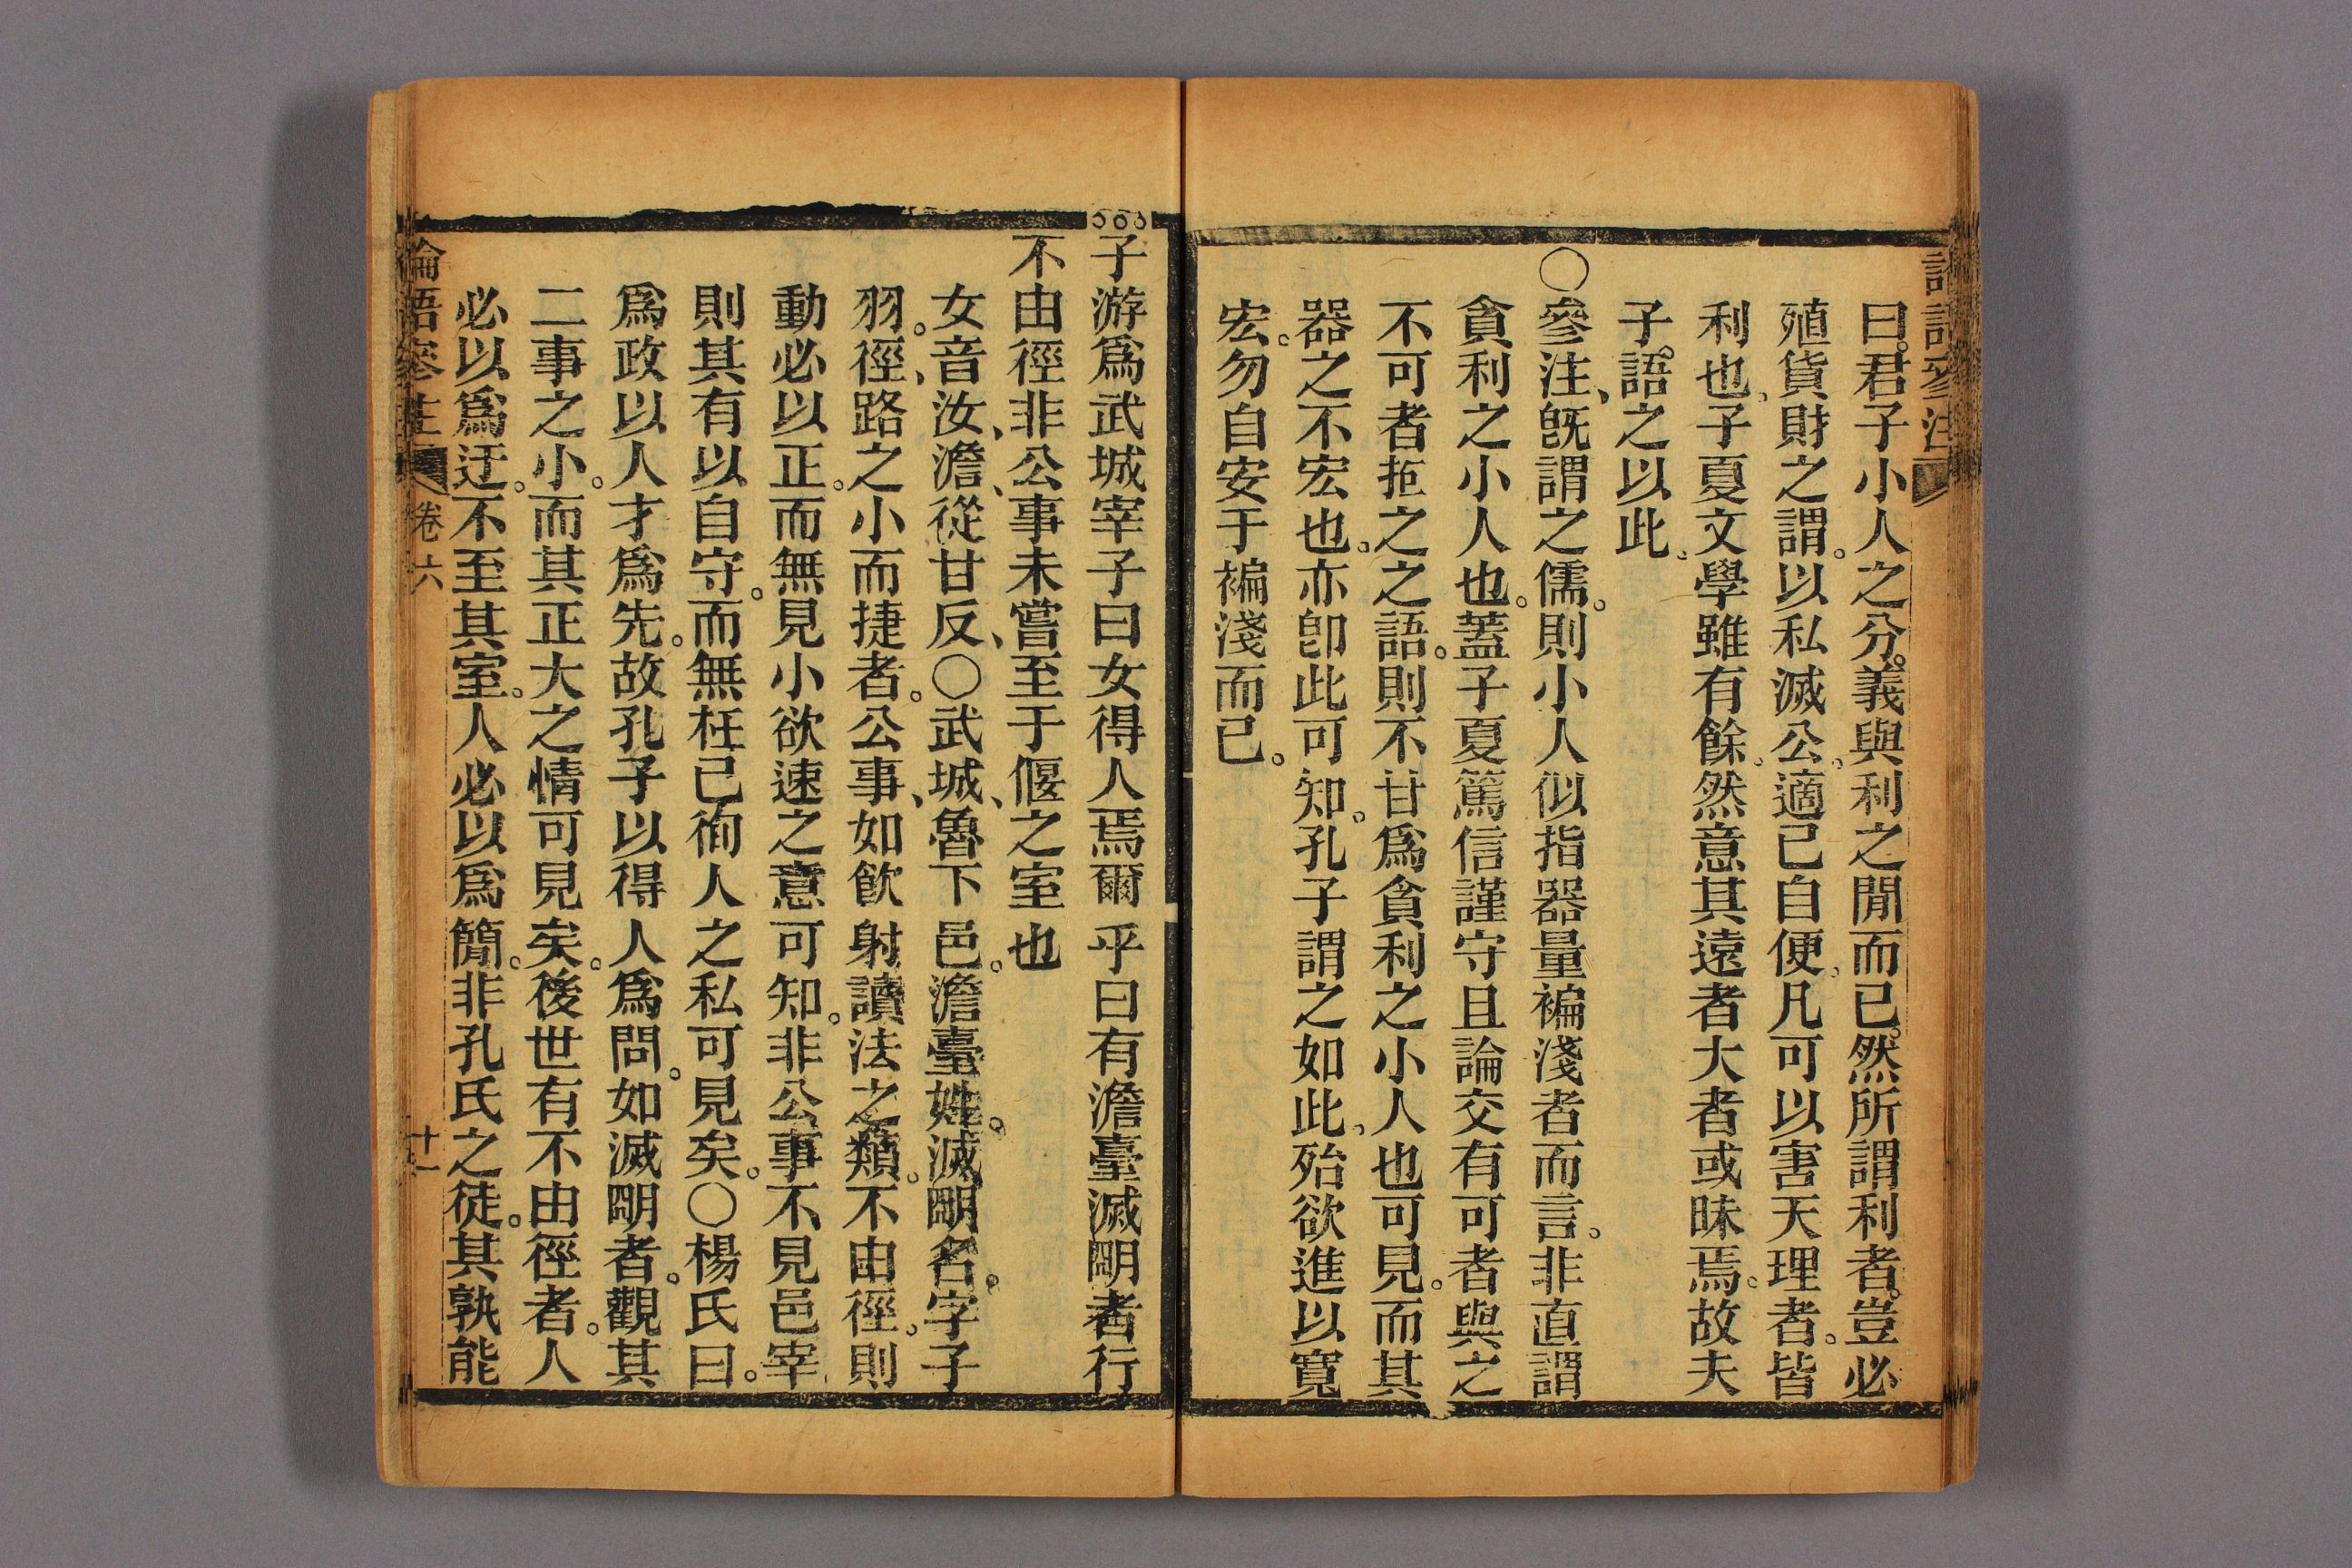 論語參注
曰。君子小人之分。義與利之閒而已。然所謂利者。豈必
殖貨財之謂。以私滅公。適己自便。凡可以害天理者。皆
利也。子夏文學雖有餘。然意其遠者大者或昧焉。故夫
子。語之以此。
〇參注、旣謂之儒。則小人似指器量褊淺者而言。非直謂
貪利之小人也。蓋子夏篤信謹守且論交有可者與之
不可者拒之之語。則不甘爲貪利之小人也可見。而其
器之不宏也。亦卽此可知。孔子謂之如此。殆欲進以寬
宏。勿自安于褊淺而已。
子游爲武城宰子曰女得人焉爾乎曰有澹臺滅明者行
不由徑非公事未嘗至于偃之室也
女音汝、澹、從甘反、〇武城、魯下邑。澹臺姓。滅明名。字子
羽。徑、路之小而捷者。公事、如飮射讀法之類。不由徑。則
動必以正。而無見小欲速之意可知。非公事不見邑宰
則其有以自守。而無枉己徇人之私可見矣。〇楊氏曰。
爲政以人才爲先。故孔子以得人爲問。如滅明者。觀其
二事之小。而其正大之情可見矣。後世有不由徑者。人
必以爲迂。不至其室。人必以爲簡。非孔氏之徒。其孰能
論語參注 卷六 十一